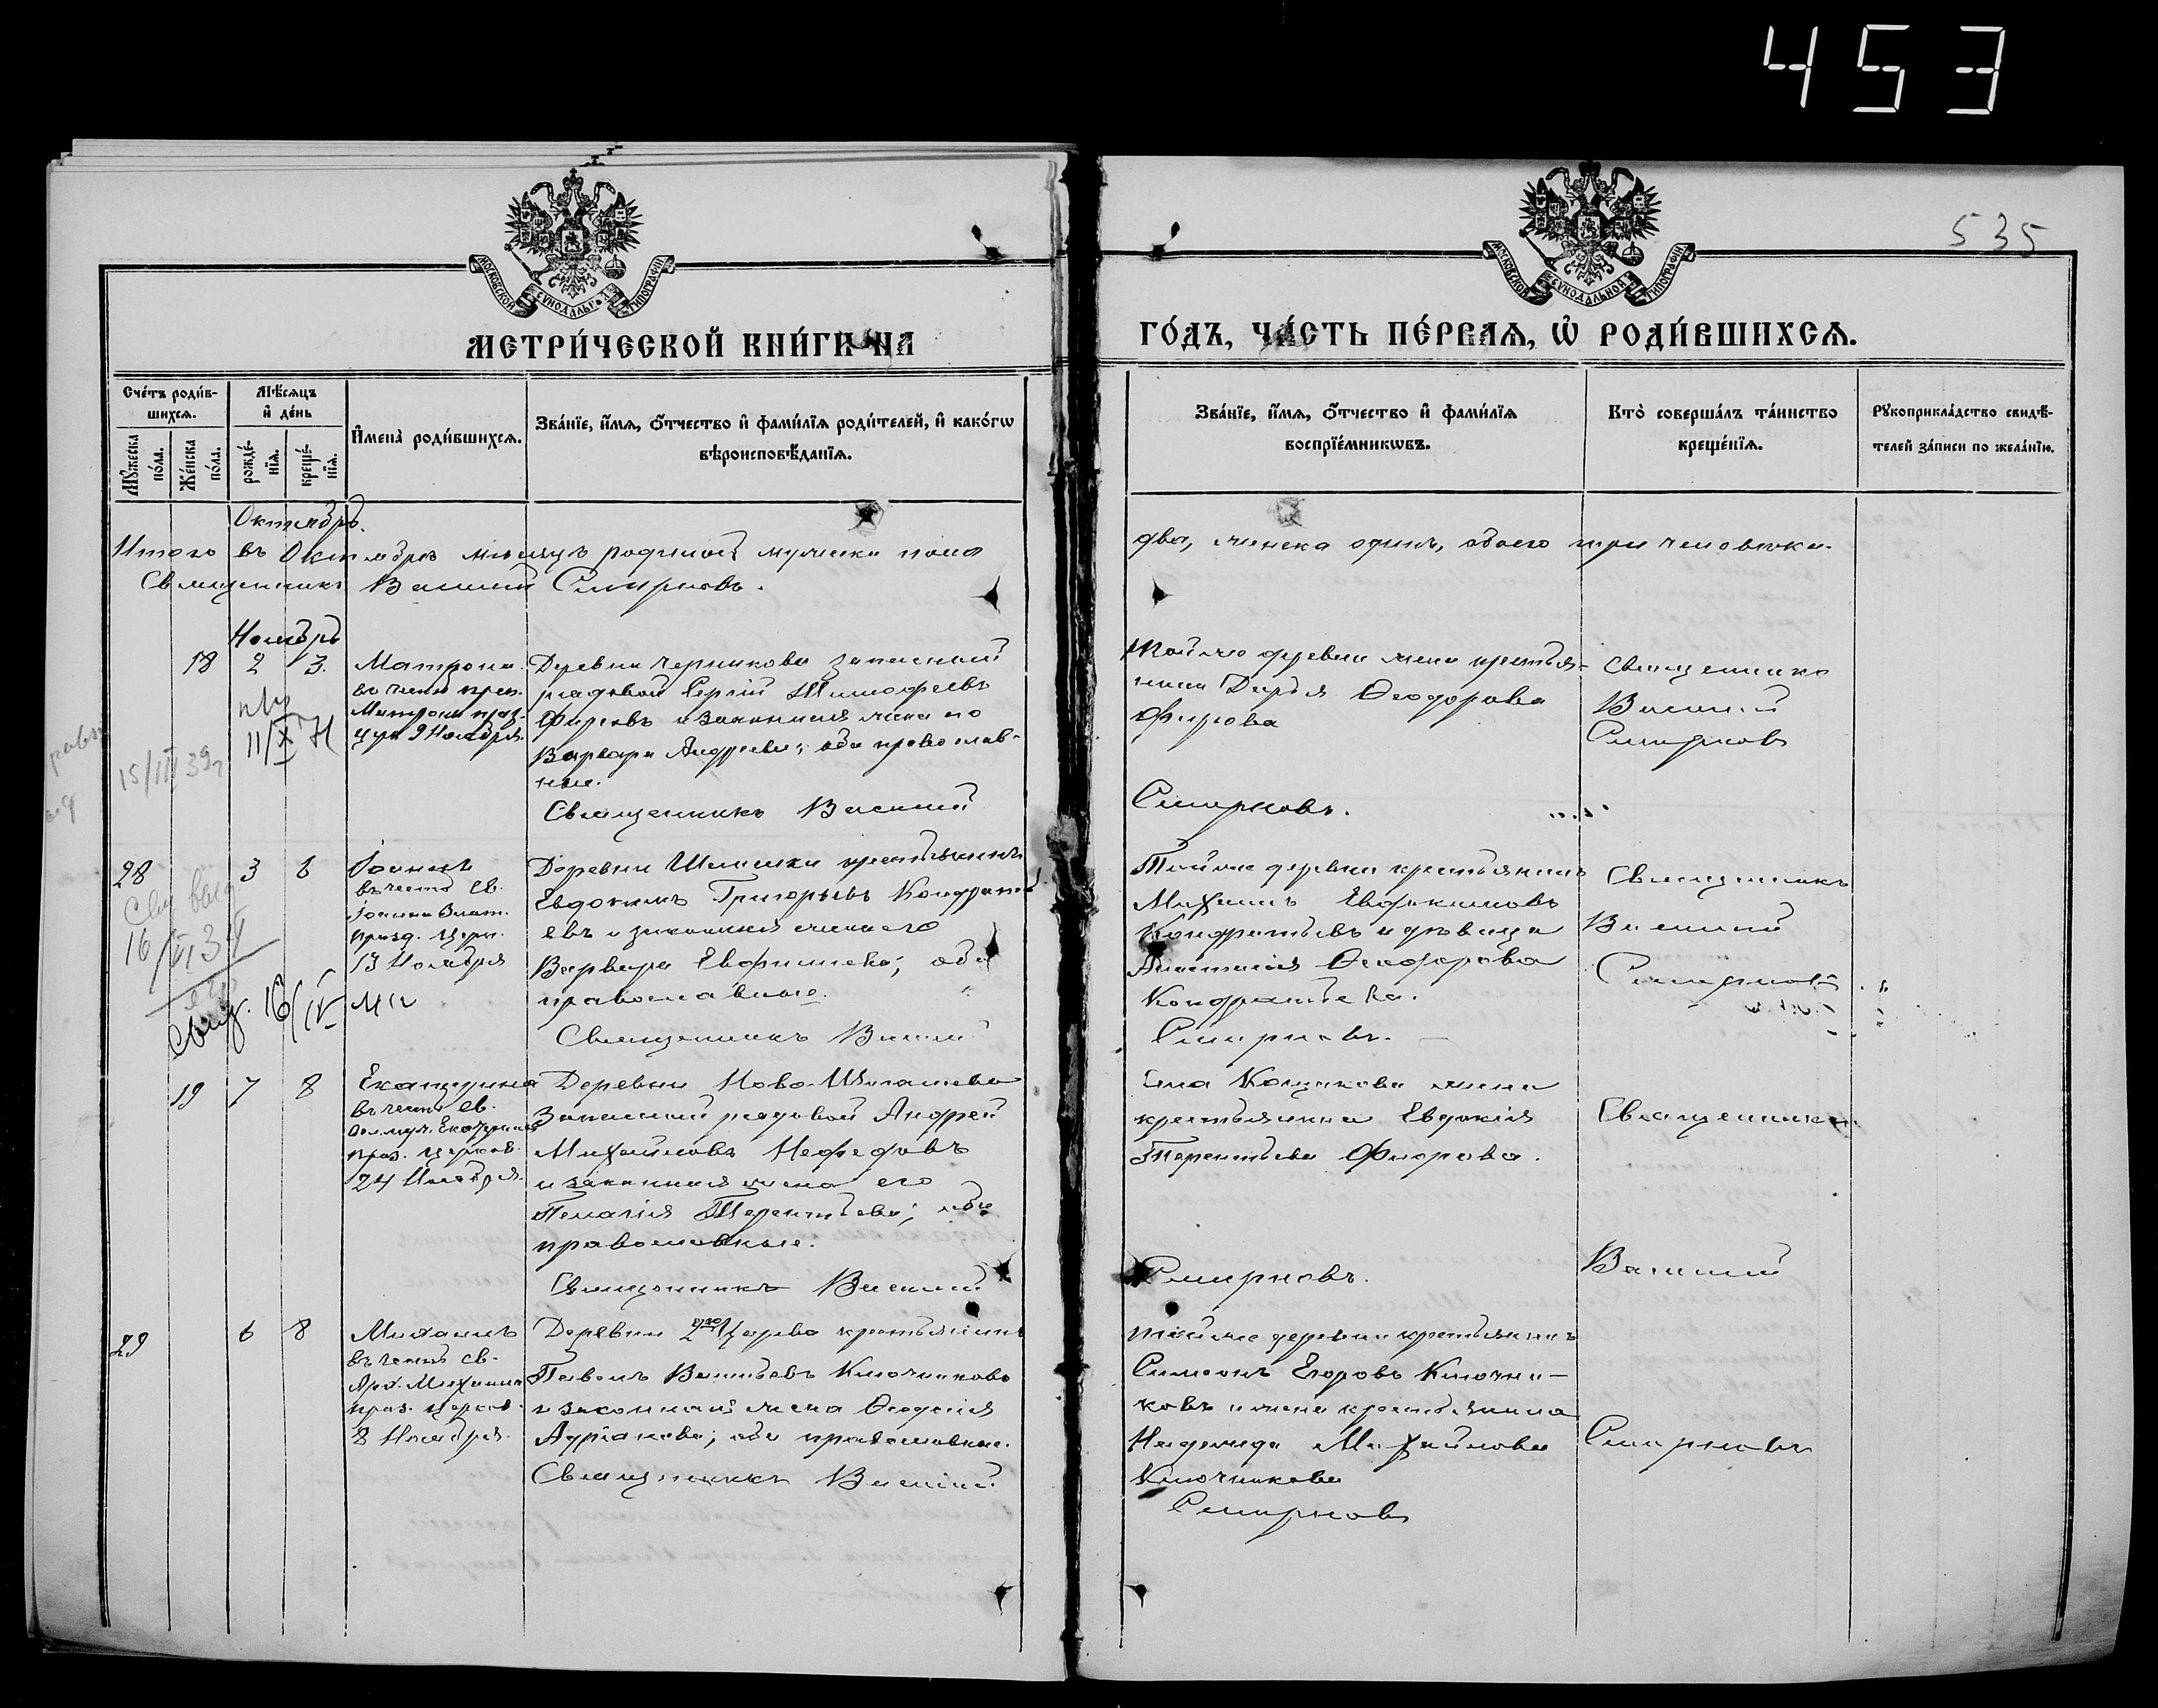 453
535
МОСКОВСКОЙ СѴНОДАЛЬНОЙ ТИПОГРАФІИ
МОСКОВСКОЙ СѴНОДАЛЬНОЙ ТИПОГРАФІИ
МЕТРИ́ЧЕСКОЙ КНИ́ГИ НА
ГО́ДЪ, ЧА́СТЬ ПЕ́РВАѦ, Ѡ҆ РОДИ́ВШИХСѦ.
Сче́тъ роди́в-
шихсѧ.
Мꙋ́жеска по́ла.
Же́нска по́ла.
Мѣ́сѧцъ
и҆ де́нь
рожде́-нїѧ.
креще́-нїѧ.
И҆мена̀ роди́вшихсѧ.
Зва́нїе, и҆́мѧ, ѻ҆́тчество и҆ фами́лїѧ роди́телей, и҆ како́гѡ
вѣроисповѣ́данїѧ.
Зва́нїе, и҆́мѧ, ѻ҆́тчество и҆ фами́лїѧ
воспрїе́мникѡвъ.
Кто̀ соверша́лъ та́инство
креще́нїѧ.
Рꙋкоприкла́дство свидѣ́-
телей за́писи по жела́нїю.
Октябрь.
Итого въ Октябрѣ мѣсяцѣ родилось мужеска пола
два, женска одинъ, обоего три человѣка.
Священникъ Василій Смирновъ.
Ноябрь
18 2 3.
Матрона
въ честь преп.
Матроны праз-
цер. 9 Ноября.
11/X
15/III 39г
Деревни Черникова запасный
рядовой Сергій Тимофеевъ
Фирсовъ и законная жена его
Варвара Андреева; оба православ-
ные.
Священникъ Василій
Той же деревни жена крестья-
нина Дарья Ѳеодорова
Фирсова
Смирновъ.
Священникъ
Василій
Смирновъ
28 3 6
Іоаннъ
въ честь св.
Іоанна Злат.
празд. церк.
13 Ноября
16/VI 34
Свид. 16/IV
Деревни крестьянинъ
Евдокимъ Григорьевъ Кондрать
евъ и законная жена его
Варвара Евфимиева; оба
православные.
Священникъ Василій
Той же деревни крестьянинъ
Михаилъ Евдокимовъ
Кондратьевъ и дѣвица
Анастасія Ѳеодорова
Кондратьева.
Смирновъ.
Священникъ
Василій
Смирновъ
19 7 8
Екатерина
въ честь св.
Вел. муч. Екатерины
праз. церков.
24 Ноября.
Деревни Ново-
Запасный рядовой Андрей
Михайловъ Нефедовъ
и законная жена его
Пелагія Терентьева; оба
православные.
Священникъ Василій
крестьянина Евдокія
Терентьева
Смирновъ.
Священникъ
Василій
29 6 8
Михаилъ
въ честь св.
Арх. Михаила
праз. церков.
8 Ноября.
Деревни 2 Царево крестьянинъ
Павелъ Васильевъ Ключниковъ
и законная жена Ѳеодосія
Адріанова; оба православные.
Священникъ Василій
той же деревни крестьянинъ
Симеонъ Егоровъ Ключни-
ковъ и жена крестьянина
Надежда Михайлова
Ключникова
Смирновъ
Смирновъ